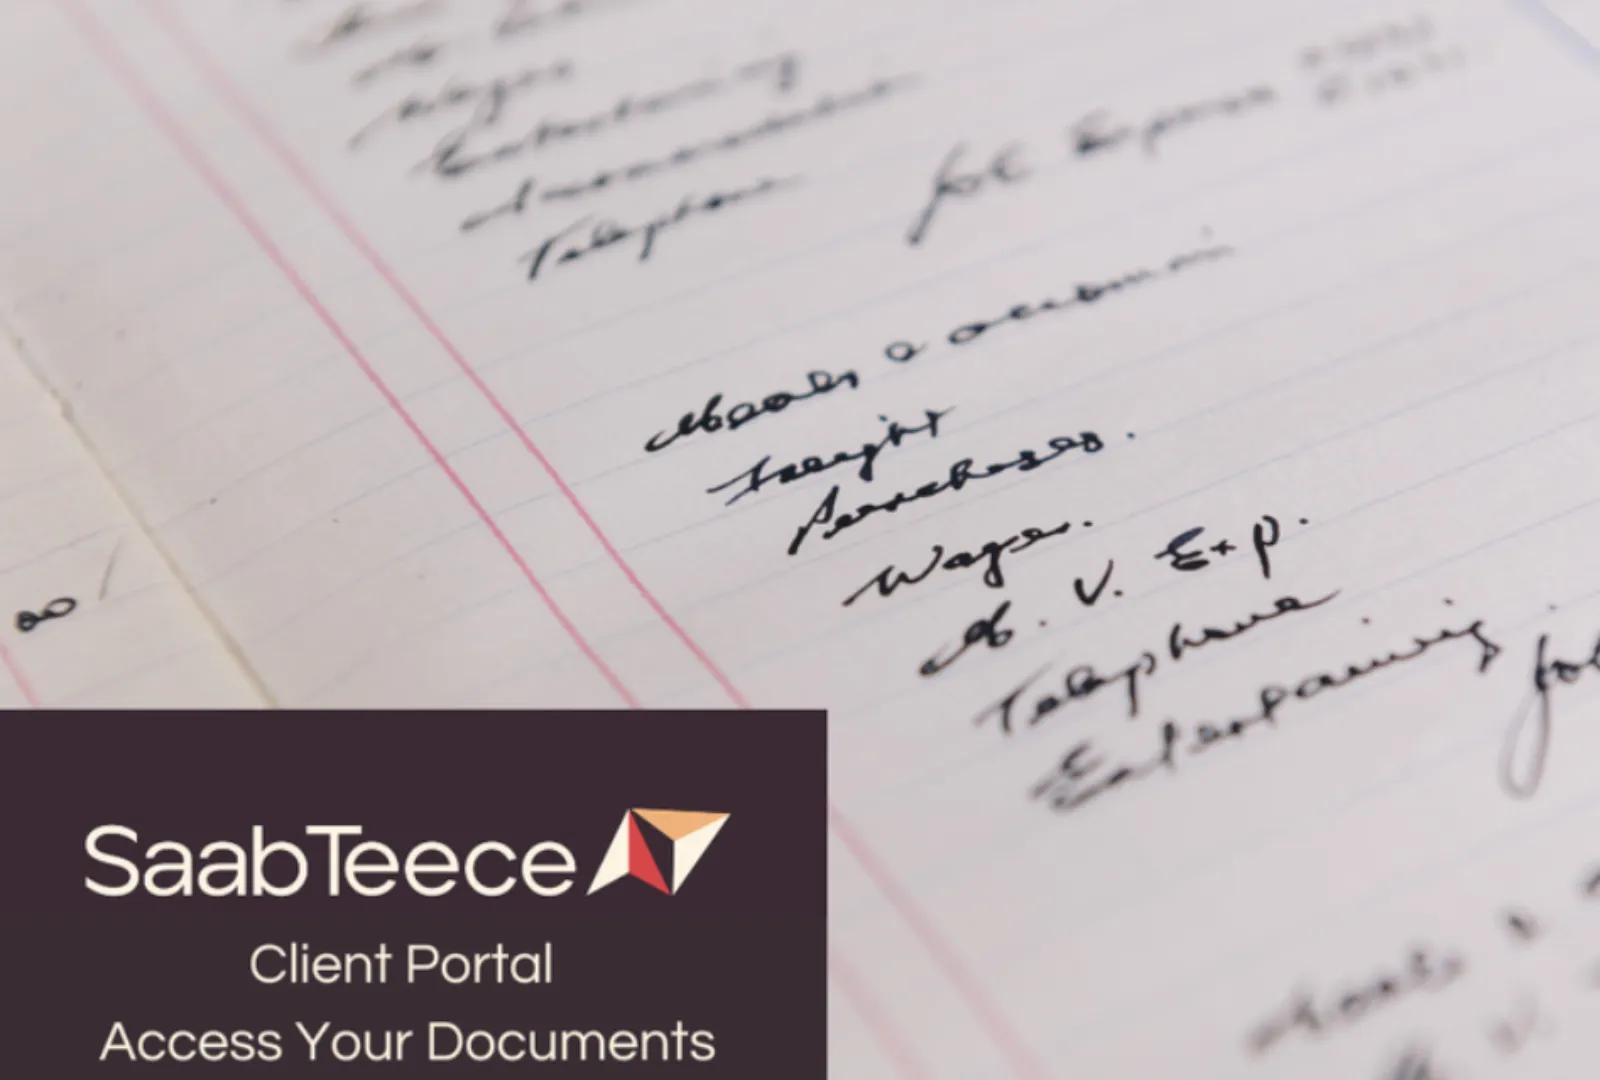 Wages
Entertaining
Telephone
Job Expenses
Meals & accommo
Freight
Purchases.
Wages.
M. V. Exp.
Telephone
Entertaining
Job
Meals &
SaabTeece
Client Portal
Access Your Documents